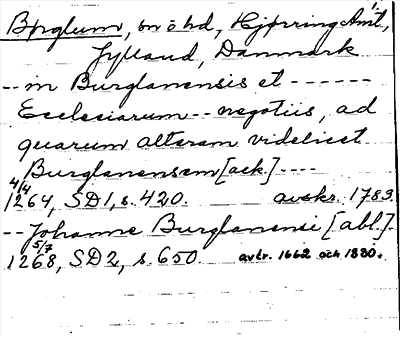 Børglum, sn o hd, Hjørring Amt,
Jylland, Danmark
-- in Burglanensis et ------
Ecclesiarum -- negotiis, ad
quarum alteram videlicet
Burglanensem [ack.] ----
4/4
1264, SD1, s. 420. avskr. 1783.
-- Johanne Burglanensi [abl.].
5/7
1268, SD2, s. 650. avtr. 1662 och 1880.